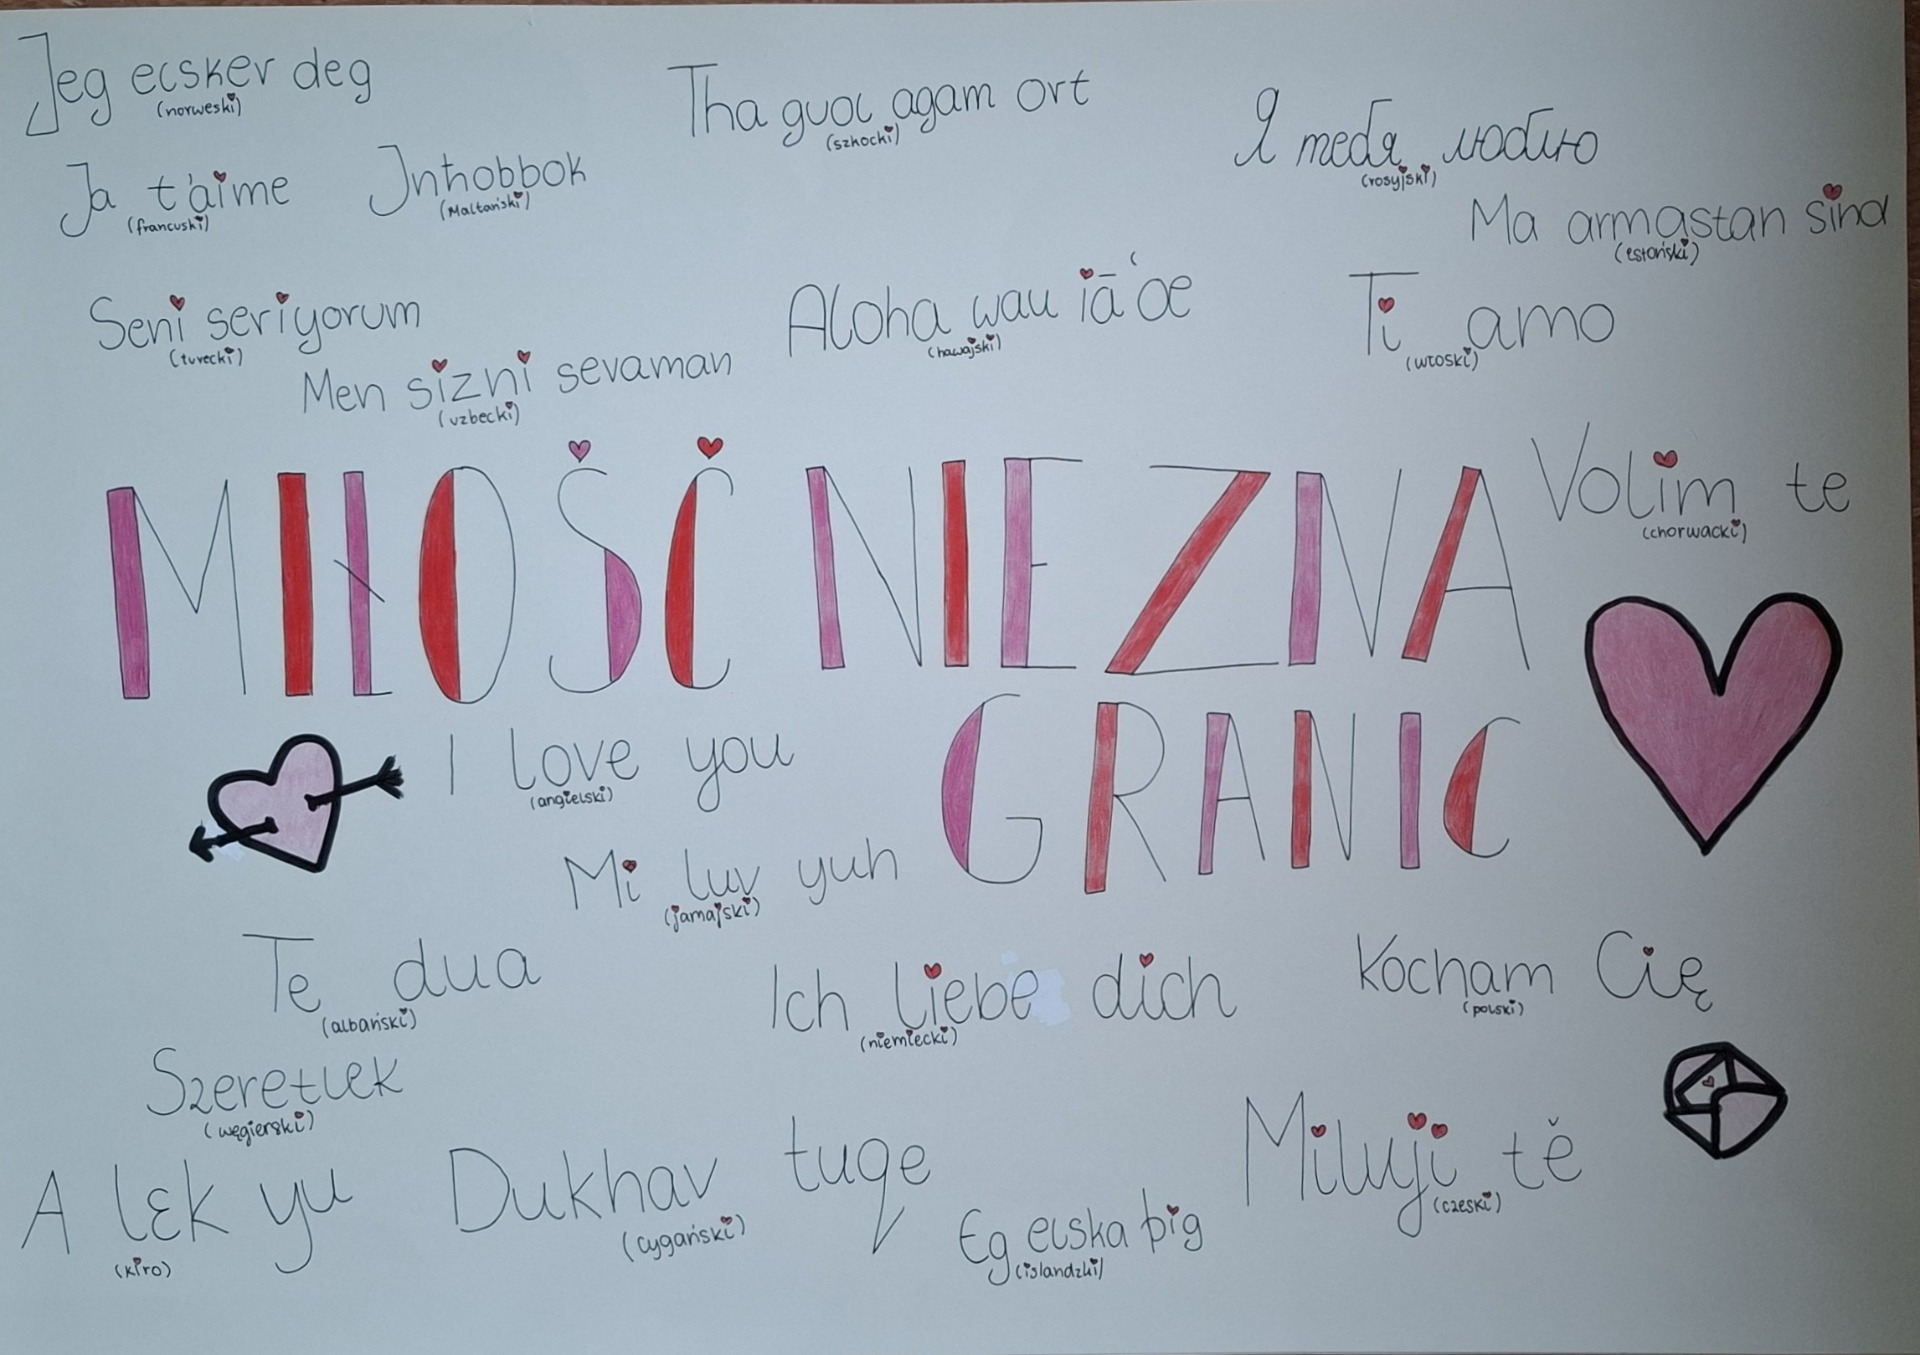 Jeg elsker deg
(norweski)
Tha guol agam ort
(szkocki)
Я тебя люблю
(rosyjski)
Ja t'aime
(francuski)
Inħobbok
(Maltański)
Ma armastan sind
(estoński)
Seni seriyorum
(turecki)
Aloha wau iā ʻoe
(hawajski)
Ti amo
(włoski)
Men sizni sevaman
(uzbecki)
MIŁOŚĆ NIE ZNA
Volim te
(chorwacki)
GRANIC
I love you
(angielski)
Mi luv yuh
(jamajski)
Te dua
(albański)
Ich liebe dich
(niemiecki)
Kocham Cię
(polski)
Szeretlek
(węgierski)
A lɛk yu
(kiro)
Dukhav tuqe
(cygański)
Eg elska þig
(islandzki)
Miluji tě
(czeski)